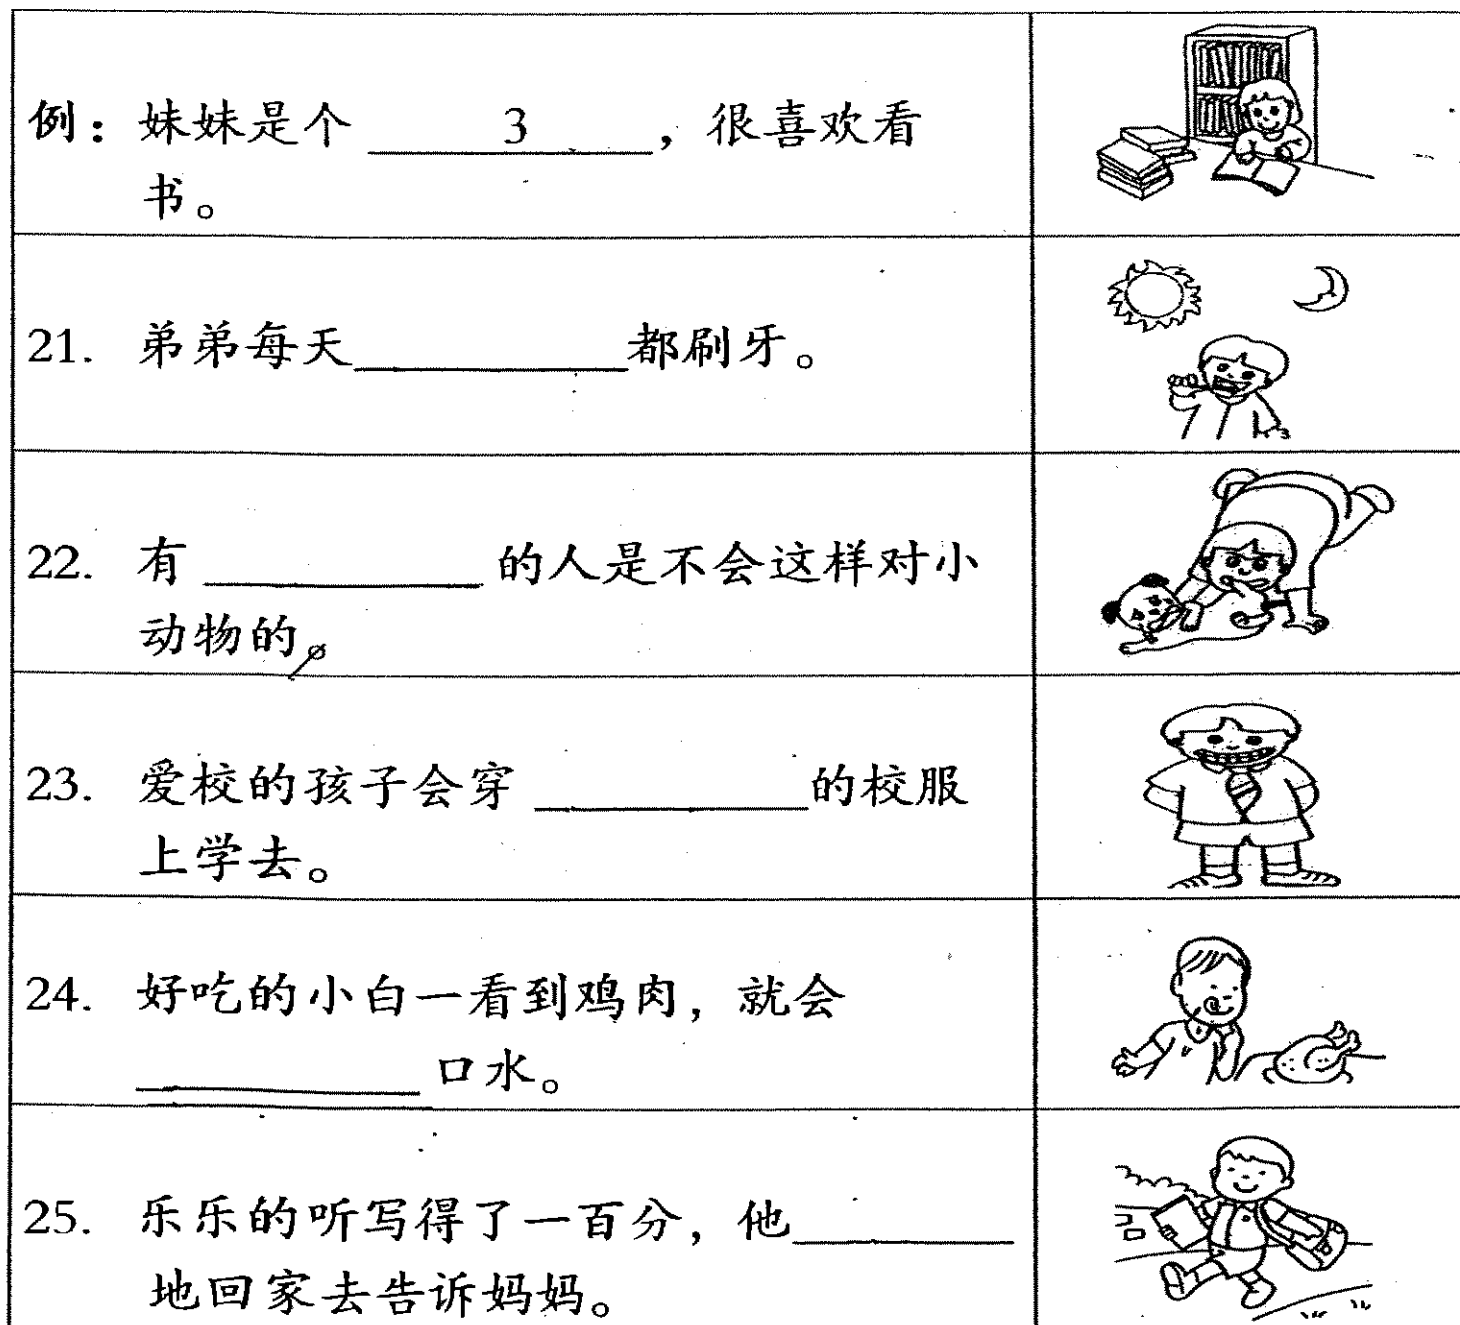 例：妹妹是个 3 ，很喜欢看
书。
21. 弟弟每天__________都刷牙。
22. 有 __________ 的人是不会这样对小
动物的。
23. 爱校的孩子会穿 __________的校服
上学去。
24. 好吃的小白一看到鸡肉，就会
__________ 口水。
25. 乐乐的听写得了一百分，他________
地回家去告诉妈妈。